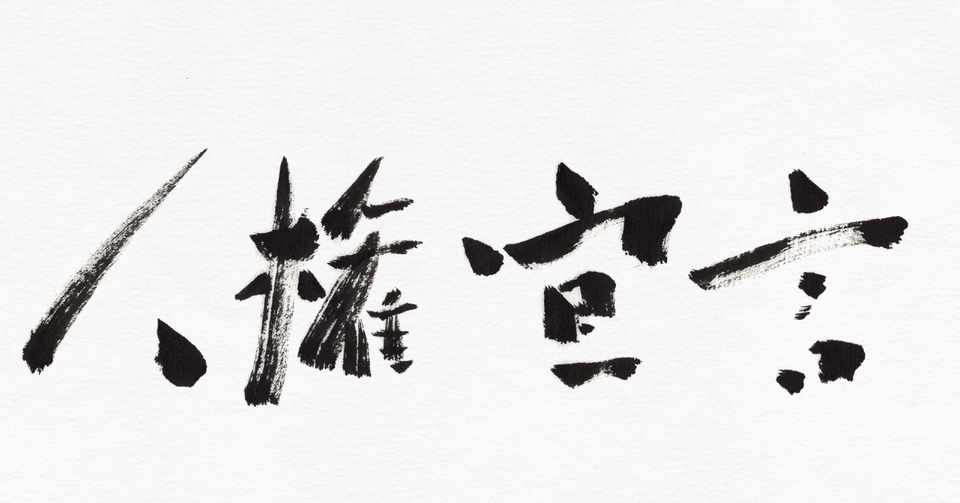 人権宣言